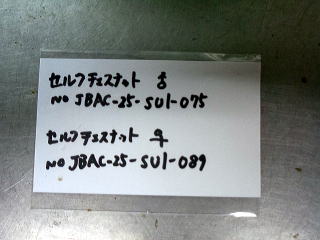 セルフチェスナット ♂
NO JBAC-25-SU1-075
セルフチェスナット ♀
NO JBAC-25-SU1-089